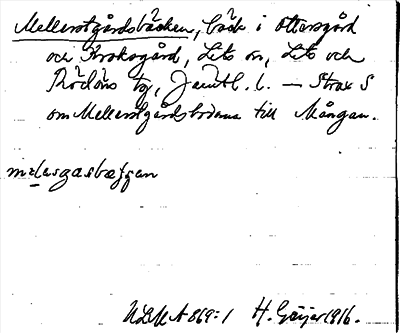 Mellerstgårdsbäcken, bäck i Ottarsgård
och Kroksgård, Lits sn, Lits och
Rödöns tg, Jämtl. l. — Strax S
om Mellerstgårdsbodarna till Mångan.
ULMA 869:1 H. Geijer 1916.